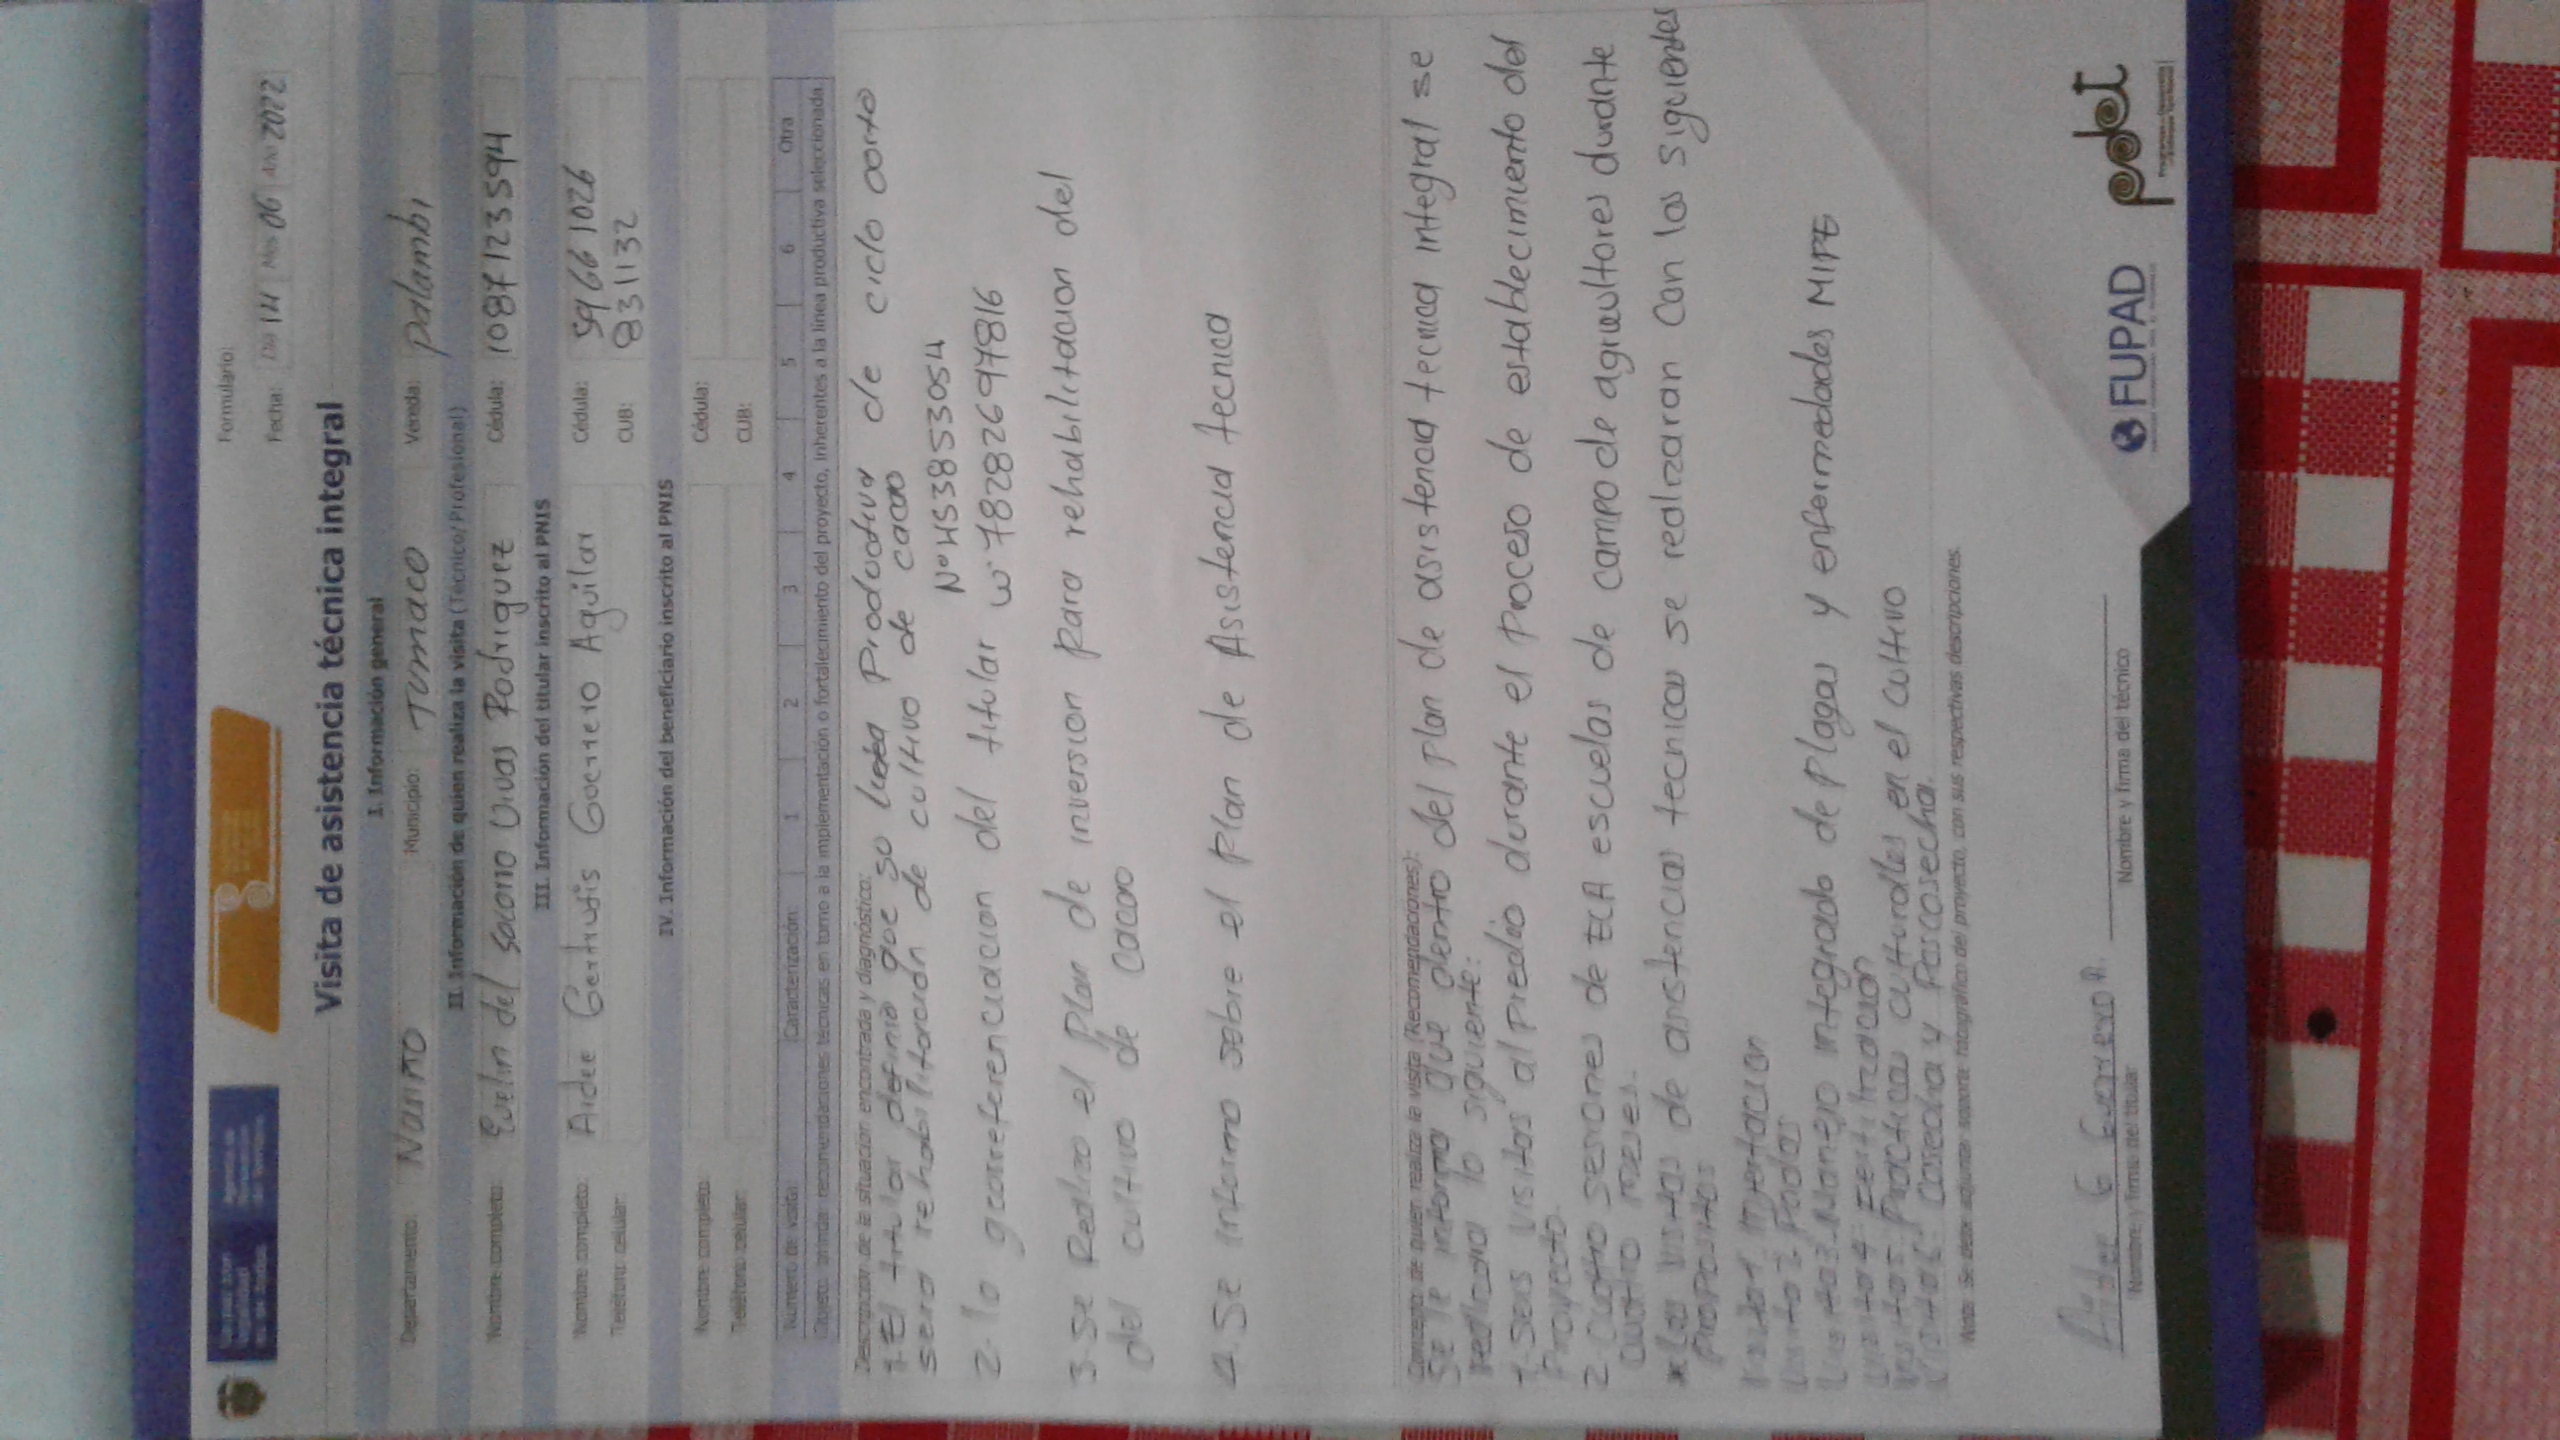 Formulario:
Fecha: Día 14 Mes 06 Año 2022
Visita de asistencia técnica integral
I. Información general
Departamento: Nariño Municipio: Tumaco Vereda: palambi
II. Información de quien realiza la visita (Técnico/Profesional)
Nombre completo: Evelin del socorro Vivas Rodriguez Cédula: 1087123594
III. Información del titular inscrito al PNIS
Nombre completo: Aidee Gertrudis Guerrero Aguilar Cédula: 59661026
Teléfono celular: CUB: 831132
IV. Información del beneficiario inscrito al PNIS
Nombre completo: Cédula:
Teléfono celular: CUB:
Número de visita: Caracterización: 1 2 3 4 5 6 Otra
Objeto: brindar recomendaciones técnicas en torno a la implementación o fortalecimiento del proyecto, inherentes a la línea productiva seleccionada.
Descripción de la situación encontrada y diagnóstico:
1. El titular definio que su Productiva de ciclo corto
sera rehabilitación de cultivo de cacao
N°453853054
2. la georreferenciacion del titular w-782826977816
3. se Realizo el Plan de inversion para rehabilitacion del
del cultivo de cacao
4. Se informo sobre el plan de Asistencia tecnica
Concepto de quien realiza la visita (Recomendaciones):
Se le informa que dentro del plan de asistencia tecnica integral se
realizara lo siguiente:
1. Seis visitas al Predio durante el Proceso de establecimiento del
Proyecto.
2. Cuatro sesiones de ECA escuelas de campo de agricultores durante
cuatro meses.
* las visitas de asistencias tecnicas se realizaran con los siguientes
Propositos
visita 1 Injertacion
visita 2 Podas
visita 3. Manejo integrado de Plagas y enfermedades MIPE
visita 4 Fertilizacion
visita 5 Practicas culturales en el cultivo
visita 6 Cosecha y Poscosecha.
Nota: Se debe adjuntar soporte fotográfico del proyecto, con sus respectivas descripciones.
Aidee G Guerrero A.
Nombre y firma del titular Nombre y firma del técnico
FUPAD
pdet